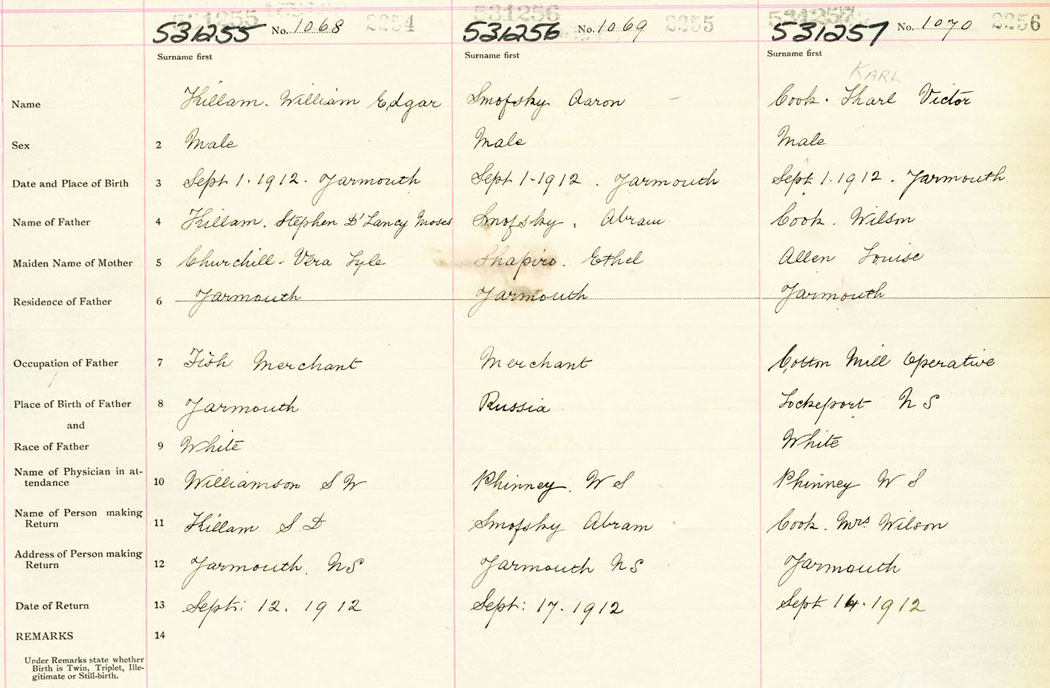 531255 No. 1068 2254 531256 No. 1069 2255 531257 No. 1070 2256
Surname first Surname first Surname first
KARL
Name Killam. William Edgar Smofsky Aaron Cook. Kharl Victor
Sex 2 Male Male Male
Date and Place of Birth 3 Sept 1. 1912. Yarmouth Sept 1-1912. Yarmouth Sept. 1. 1912. Yarmouth
Name of Father 4 Killam. Stephen D'Lancy Moses Smofsky. Abram Cook. Wilson
Maiden Name of Mother 5 Churchill- Vera Lyle Shapiro. Ethel Allen Louise
Residence of Father 6 Yarmouth Yarmouth Yarmouth
Occupation of Father 7 Fish Merchant Merchant Cotton Mill Operative
Place of Birth of Father 8 Yarmouth Russia Lockeport N S
and
Race of Father 9 White White
Name of Physician in at-
tendance 10 Williamson S W Phinney. W S Phinney W S
Name of Person making
Return 11 Killam S D Smofsky Abram Cook. Mrs Wilson
Address of Person making
Return 12 Yarmouth. NS Yarmouth NS Yarmouth
Date of Return 13 Sept: 12. 1912 Sept: 17. 1912 Sept 14. 1912
REMARKS 14
Under Remarks state whether
Birth is Twin, Triplet, Ille-
gitimate or Still-birth.